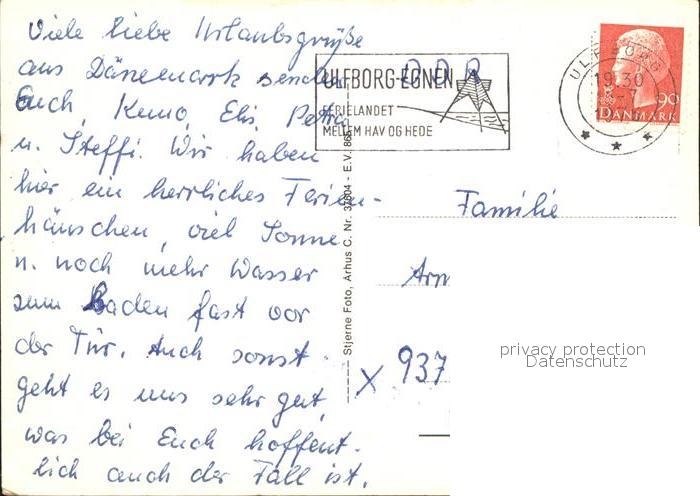 Viele liebe Urlaubsgrüße
aus Dänemark senden
Euch, Kuno, Elis, Petra
u. Steffi. Wir haben
hier ein herrliches Ferien-
häuschen, viel Sonne
u. noch mehr Wasser
zum Baden fast vor
der Tür. Auch sonst
geht es uns sehr gut,
was bei Euch hoffent-
lich auch der Fall ist.
Stjerne Foto, Århus C. Nr. 37604 - E.V. 86
ULFBORG-EGNEN
FERIELANDET
MELLEM HAV OG HEDE
DDR
ULFBORG
19.30
90
DANMARK
Familie
X 937
privacy protection
Datenschutz